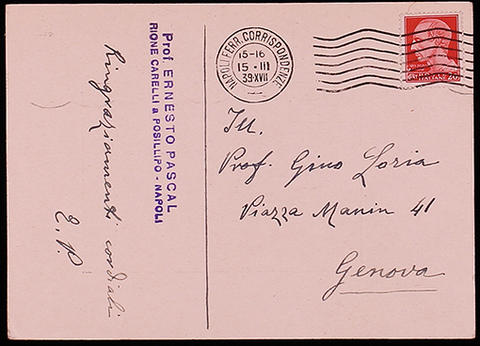 Prof. ERNESTO PASCAL
RIONE CARELLI a POSILLIPO - NAPOLI
Ringraziamenti cordiali
E. P.
NAPOLI FERR. CORRISPONDENZE
15-16
15 · III
39·XVII
Ill.
Prof. Gino Loria
Piazza Manin 41
Genova